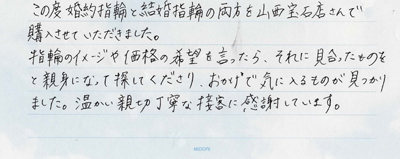 この度婚約指輪と結婚指輪の両方を山西宝石店さんで
購入させていただきました。
指輪のイメージや価格の希望を言ったら、それに見合ったものを
と親身になって探してくださり、おかげで気に入るものが見つかり
ました。温かい親切丁寧な接客に感謝しています。
MIDORI